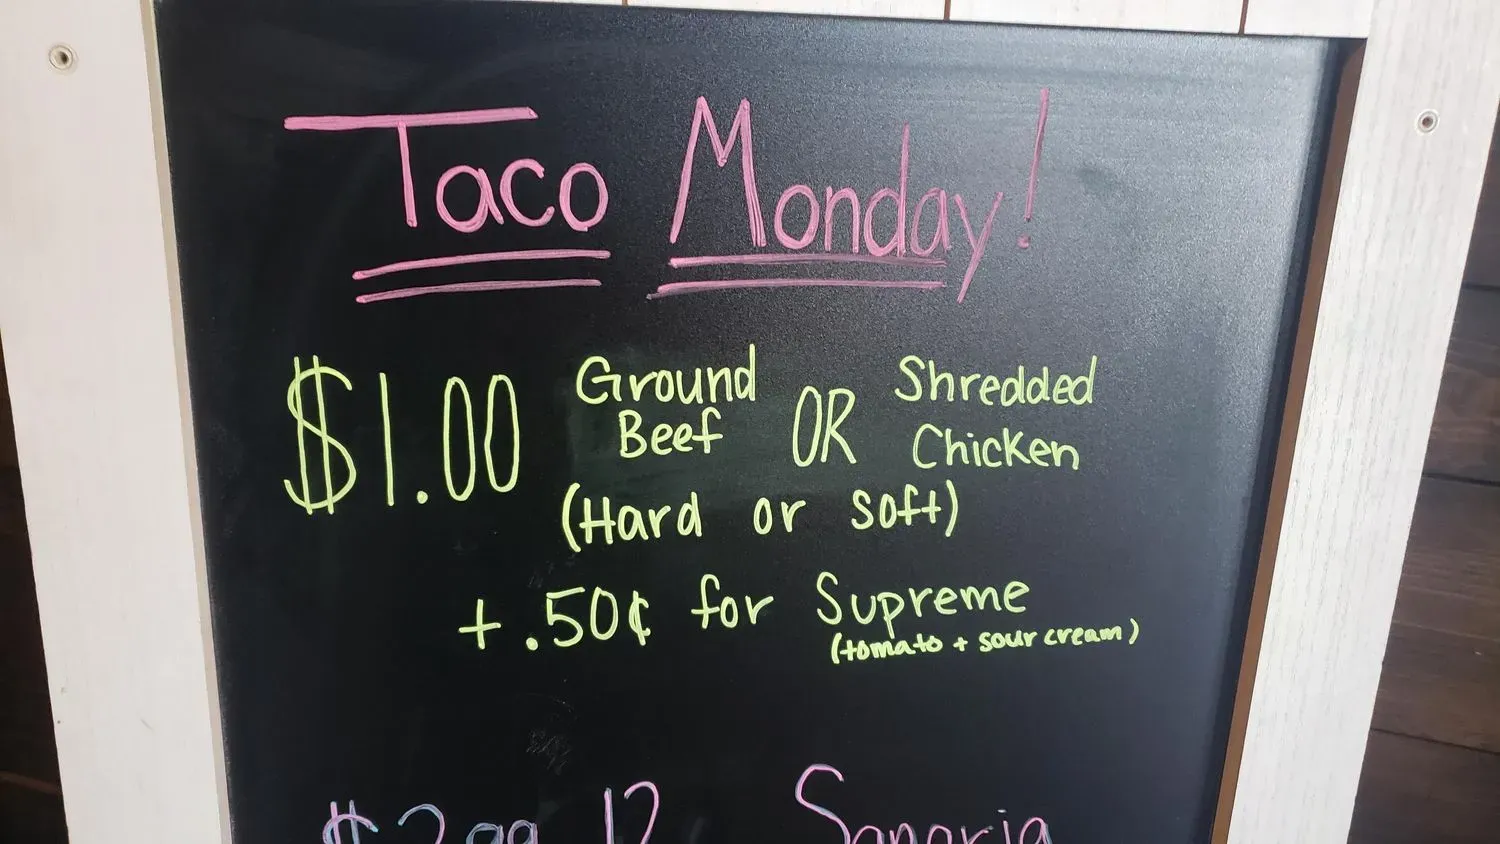 Taco Monday!
$1.00 Ground Beef OR Shredded Chicken
(Hard or Soft)
+ .50¢ for Supreme
(tomato + sour cream)
Sangria